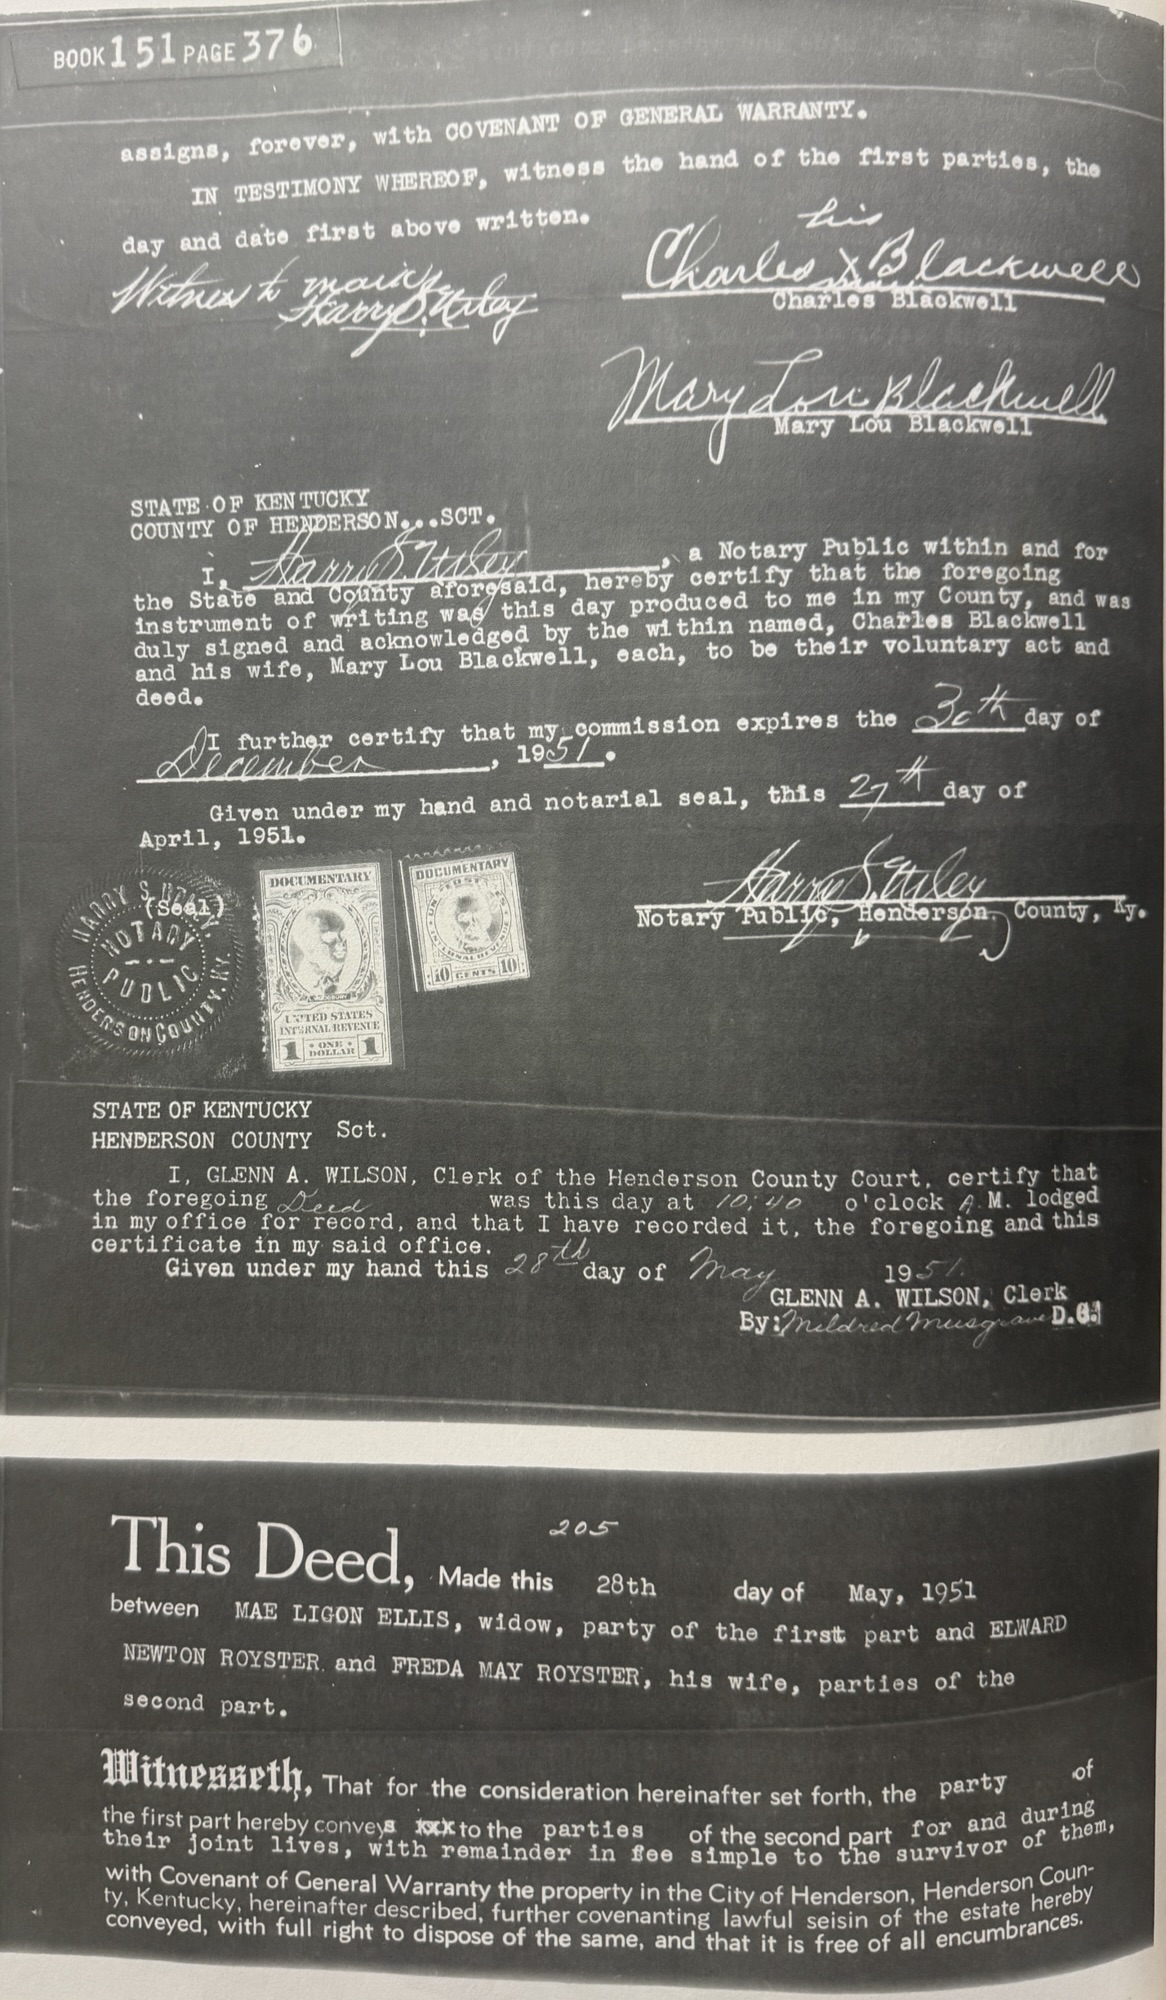 BOOK 151 PAGE 376
assigns, forever, with COVENANT OF GENERAL WARRANTY.
IN TESTIMONY WHEREOF, witness the hand of the first parties, the
day and date first above written.
his
Charles X Blackwell
mark
Charles Blackwell
Witness to mark
Harry S. Utley
Mary Lou Blackwell
Mary Lou Blackwell
STATE OF KENTUCKY
COUNTY OF HENDERSON...SCT.
I, Harry S. Utley, a Notary Public within and for
the State and County aforesaid, hereby certify that the foregoing
instrument of writing was this day produced to me in my County, and was
duly signed and acknowledged by the within named, Charles Blackwell
and his wife, Mary Lou Blackwell, each, to be their voluntary act and
deed.
I further certify that my commission expires the 30th day of
December, 1951.
Given under my hand and notarial seal, this 27th day of
April, 1951.
HARRY S. UTLEY
(Seal)
NOTARY
PUBLIC
HENDERSON COUNTY, KY.
DOCUMENTARY
UNITED STATES
INTERNAL REVENUE
1 ONE DOLLAR 1
DOCUMENTARY
10 CENTS 10
Harry S. Utley
Notary Public, Henderson County, Ky.
STATE OF KENTUCKY
HENDERSON COUNTY Sct.
I, GLENN A. WILSON, Clerk of the Henderson County Court, certify that
the foregoing Deed was this day at 10:40 o'clock A.M. lodged
in my office for record, and that I have recorded it, the foregoing and this
certificate in my said office.
Given under my hand this 28th day of May 1951.
GLENN A. WILSON, Clerk
By: Mildred Musgrave D.C.
205
This Deed, Made this 28th day of May, 1951
between MAE LIGON ELLIS, widow, party of the first part and ELWARD
NEWTON ROYSTER and FREDA MAY ROYSTER, his wife, parties of the
second part.
Witnesseth, That for the consideration hereinafter set forth, the party of
the first part hereby conveys xxx to the parties of the second part for and during
their joint lives, with remainder in fee simple to the survivor of them,
with Covenant of General Warranty the property in the City of Henderson, Henderson Coun-
ty, Kentucky, hereinafter described, further covenanting lawful seisin of the estate hereby
conveyed, with full right to dispose of the same, and that it is free of all encumbrances.